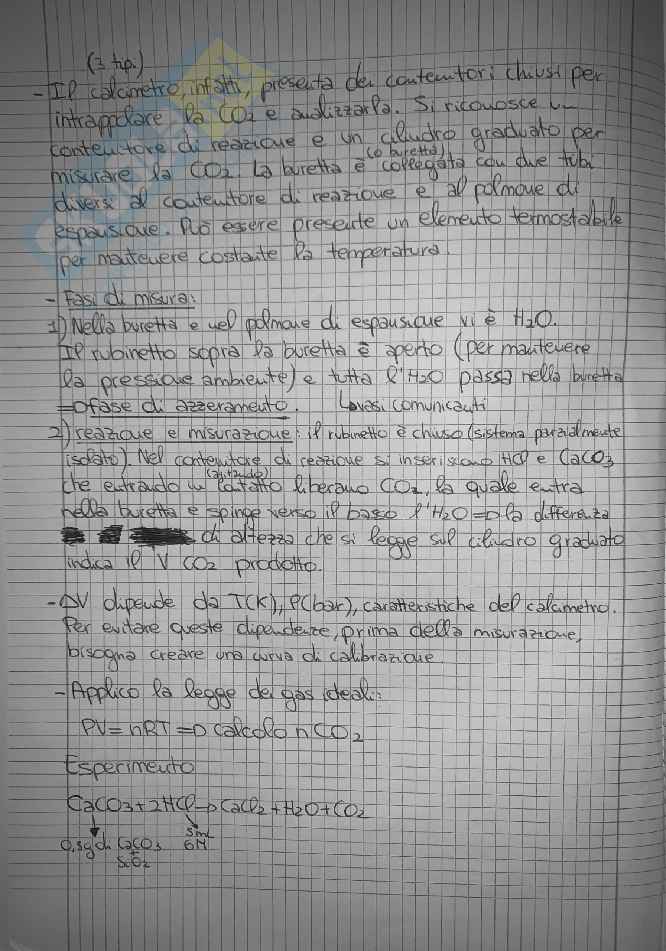 (3 tipi)
- Il calcimetro, infatti, presenta dei contenitori chiusi per
intrappolare la CO2 e analizzarla. Si riconosce un
contenitore di reazione e un cilindro graduato per
(o buretta)
misurare la CO2. La buretta è collegata con due tubi
diversi al contenitore di reazione e al polmone di
espansione. Può essere presente un elemento termostabile
per mantenere costante la temperatura.
- Fasi di misura:
1) Nella buretta e nel polmone di espansione vi è H2O.
Il rubinetto sopra la buretta è aperto (per mantenere
la pressione ambiente) e tutta l'H2O passa nella buretta
=> fase di azzeramento. vasi comunicanti
2) reazione e misurazione: il rubinetto è chiuso (sistema parzialmente
isolato). Nel contenitore di reazione si inseriscono HCl e CaCO3
(agitando)
che entrando in contatto liberano CO2, la quale entra
nella buretta e spinge verso il basso l'H2O => la differenza
di altezza che si legge sul cilindro graduato
indica il V CO2 prodotto.
- ΔV dipende da T(K), P(bar), caratteristiche del calcimetro.
Per evitare queste dipendenze, prima della misurazione,
bisogna creare una curva di calibrazione
- Applico la legge dei gas ideali:
PV = nRT => calcolo n CO2
Esperimento
CaCO3 + 2HCl → CaCl2 + H2O + CO2
5mL
0,5g di CaCO3 6M
+
SiO2